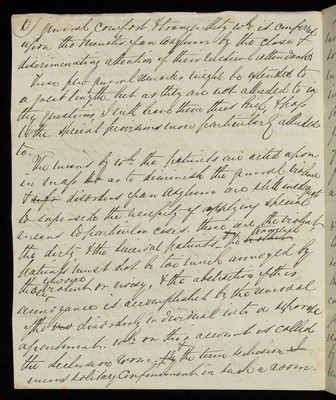 of general comfort & tranquillity wh. is conferred
upon the inmates of an asylum by the close &
discriminating attention of their medical attendants.
These few general remarks might be extended to
a great length but as they are not alluded to in
the questions, I will leave them thus brief, & pass
to the special provisions more particularly alluded
to.
The means by wh. the patients are acted upon
in mass so as to diminish the general violence
& disorders of an asylum are still inadequate
to supersede the necessity of applying special
means to particular cases. These are the violent
the dirty & the suicidal patients. The tranquil
patients must not be too much annoyed by
those violent or noisy, & the abstraction of this
annoyance is accomplished by the removal
of the disorderly individual into a separate
apartment wh. on this account is called
the seclusion room. By the term seclusion I
mean solitary confinement in such a room.